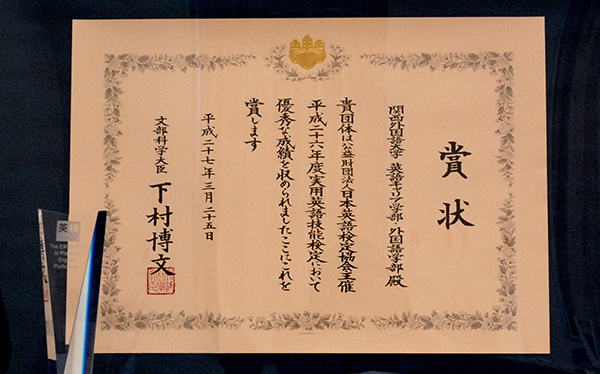 賞状
関西外国語大学 英語キャリア学部 外国語学部 殿
貴団体は公益財団法人日本英語検定協会主催
平成二十六年度実用英語技能検定において
優秀な成績を収められましたここにこれを
賞します
平成二十七年三月二十五日
文部科学大臣 下村博文
英検